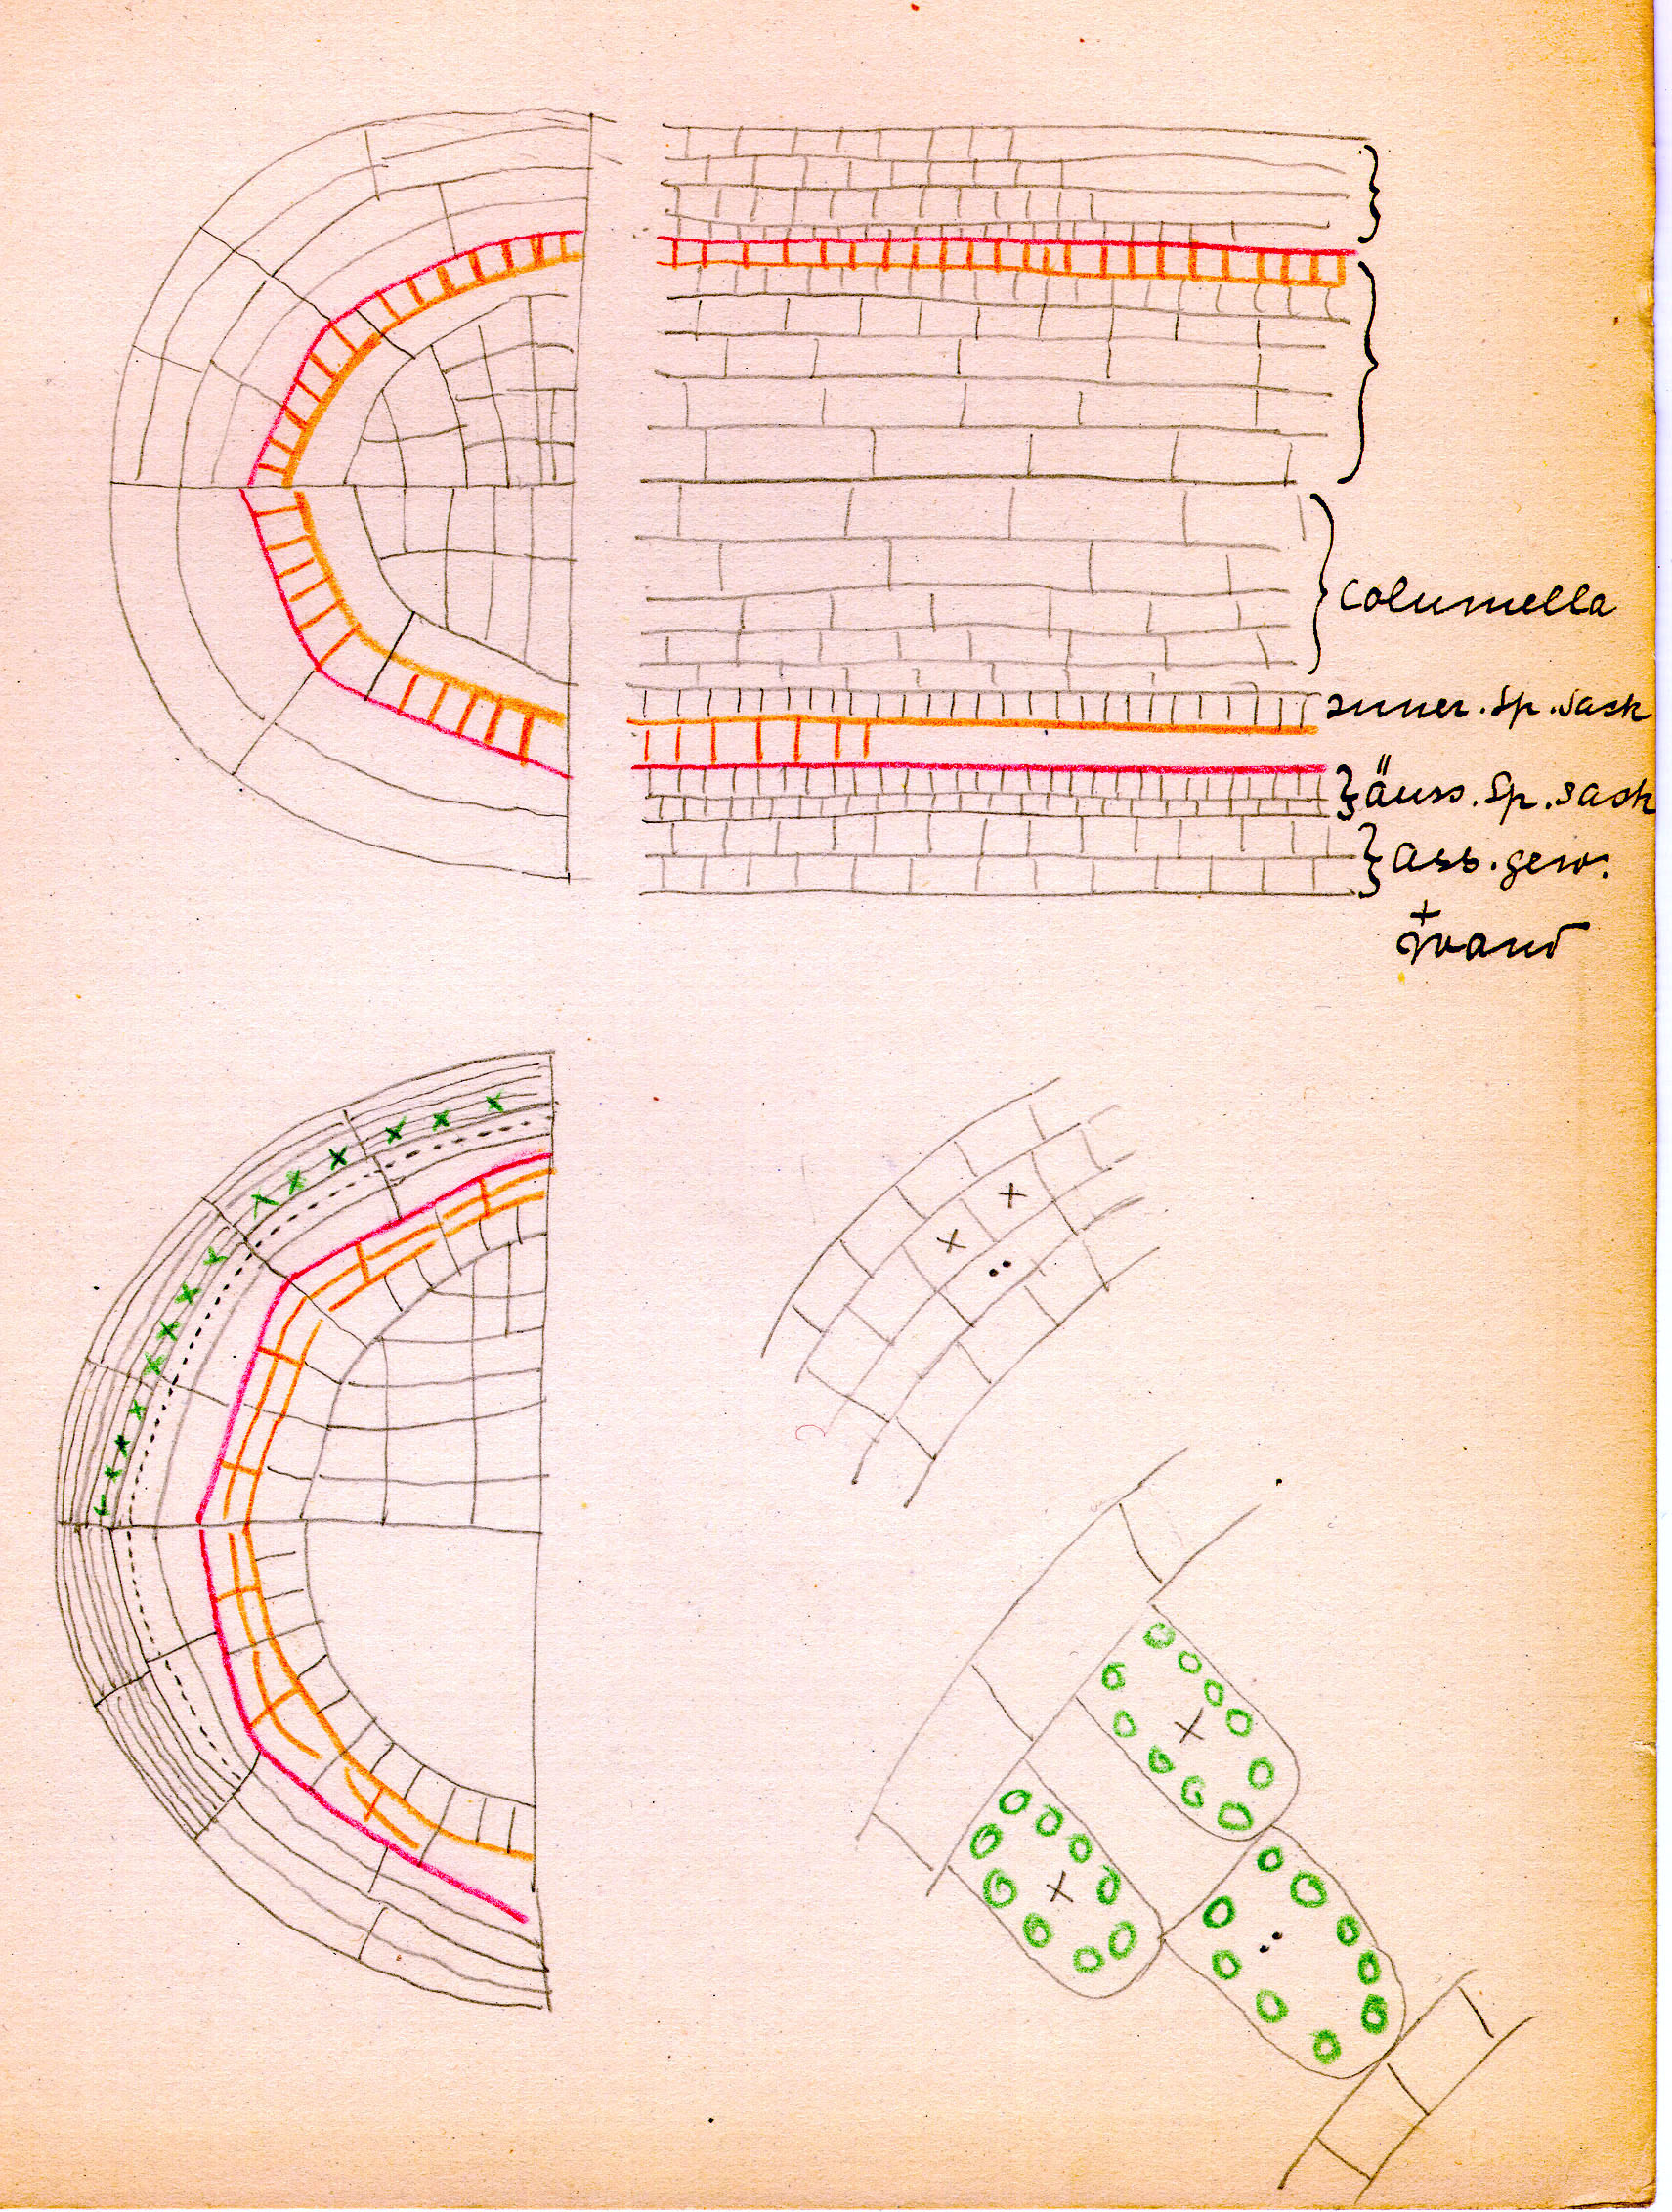 Columella
inner. Sp. sack
äuss. Sp. sack
ass. gew.
+
wand